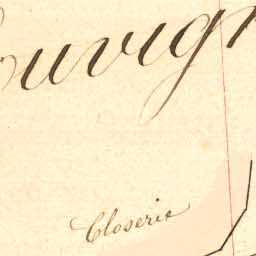 ouvig
Closerie